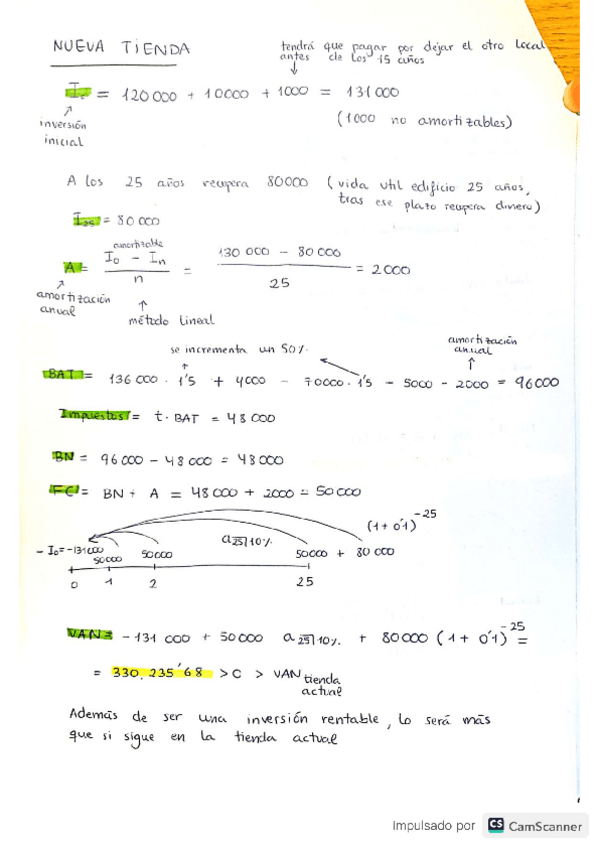 NUEVA TIENDA
tendrá que pagar por dejar el otro local
antes de los 15 años
I₀ = 120 000 + 10000 + 1000 = 131 000
(1000 no amortizables)
inversión
inicial
A los 25 años recupera 80000 (vida util edificio 25 años,
tras ese plazo recupera dinero)
I₂₅ = 80 000
amortizable
A = (I₀ - Iₙ) / n = (130 000 - 80 000) / 25 = 2000
amortización
anual
método lineal
se incrementa un 50%
amortización
anual
BAT = 136 000 · 1'5 + 4000 - 70000 · 1'5 - 5000 - 2000 = 96000
Impuestos = t · BAT = 48 000
BN = 96 000 - 48 000 = 48 000
FC = BN + A = 48 000 + 2000 = 50 000
(1 + 0'1)⁻²⁵
- I₀ = -131000 50000 50000 a25|10% 50000 + 80 000
0 1 2 25
VAN = - 131 000 + 50000 a25|10% + 80000 (1 + 0'1)⁻²⁵ =
= 330.235'68 > 0 > VAN tienda
actual
Además de ser una inversión rentable, lo será más
que si sigue en la tienda actual
Impulsado por CS CamScanner